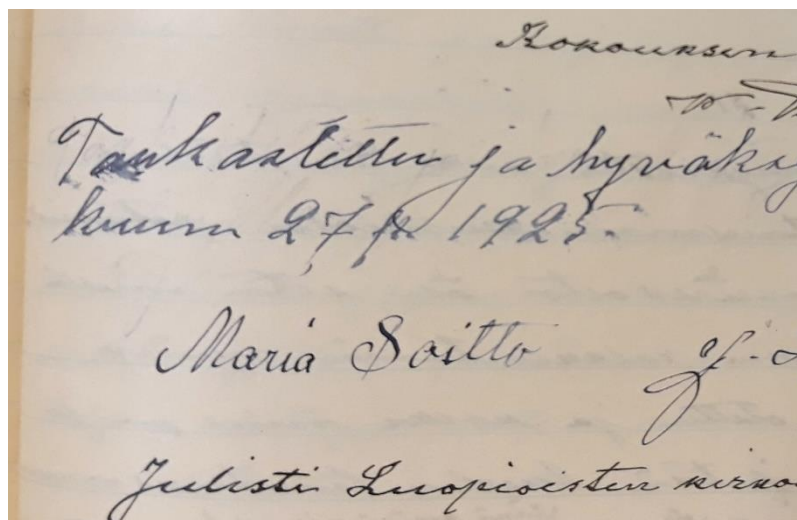 Kokouksen
Tarkastettu ja hyväksy
kuun 27 p. 1925.
Maria Soitto J.
Julisti Luopioisten kirko